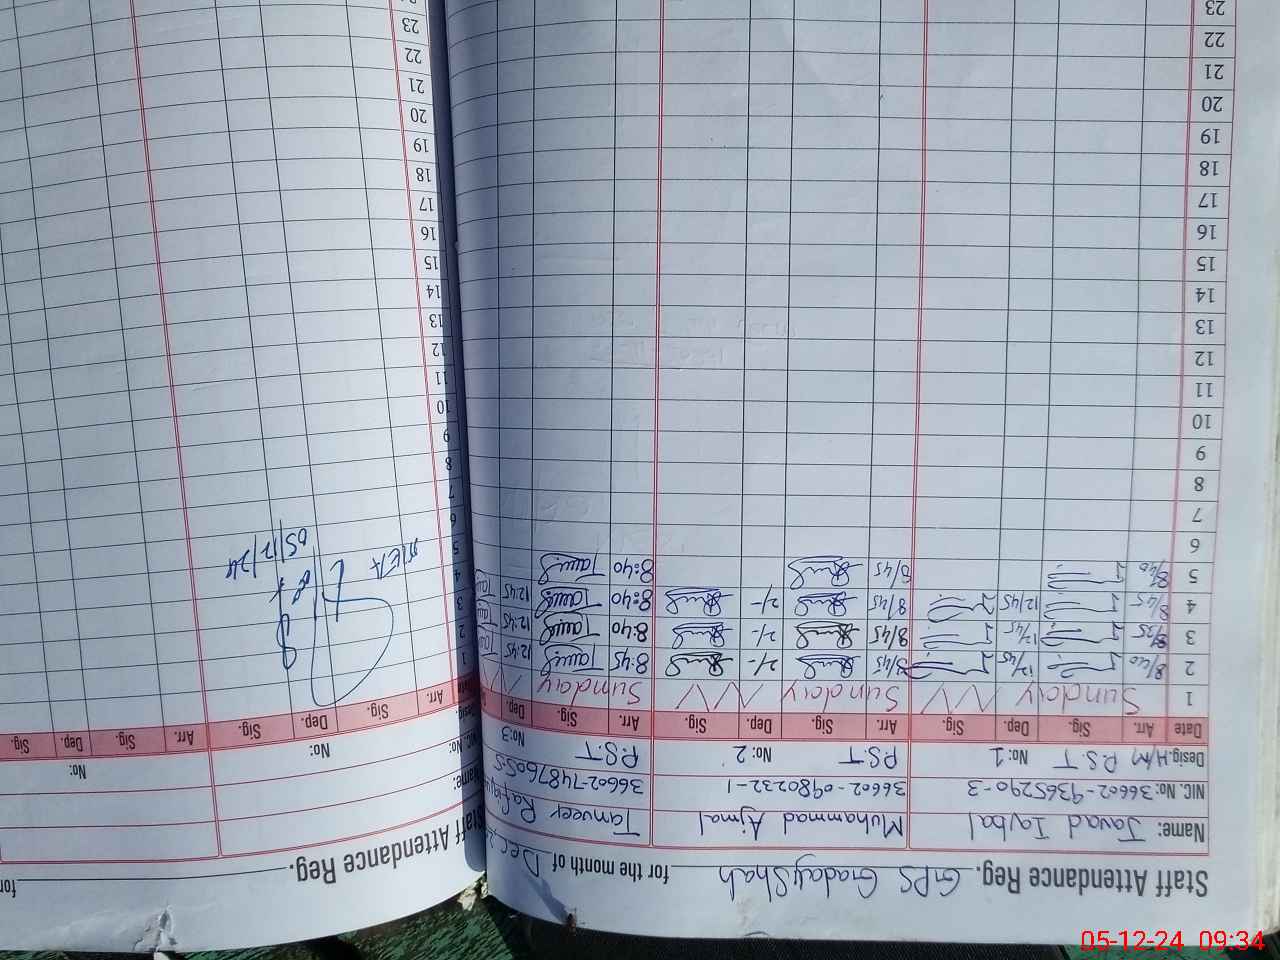 Staff Attendance Reg. GPS Graday Shah for the month of Dec, 2
Name: Javad Iqbal Muhammad Ajmal Tanveer Rafiq
NIC. No: 36602-9365290-3 36602-0980232-1 36602-7487605-5
Desig. H/M P.S.T No: 1 P.S.T No: 2 P.S.T No: 3
Date Arr. Sig. Dep. Sig. Arr. Sig. Dep. Sig. Arr. Sig. Dep. S
1 Sunday Sunday Sunday
2 8/40 12/45 8/45 2/- 8:45 12:45
3 8/35 12/45 8/45 2/- 8:40 12:45
4 8/45 12/45 8/45 2/- 8:40 12:45
5 8/40 8/45 8:40
6
7
8
9
10
11
12
13
14
15
16
17
18
19
20
21
22
23
Staff Attendance Reg. for
Name:
NIC. No: No: No:
Desig.
Date Arr. Sig. Dep. Sig. Arr. Sig. Dep. Sig.
1
2
3
4
5
6
7
8
9
10
11
12
13
14
15
16
17
18
19
20
21
22
23
MEA
05/12/24
05-12-24 09:34